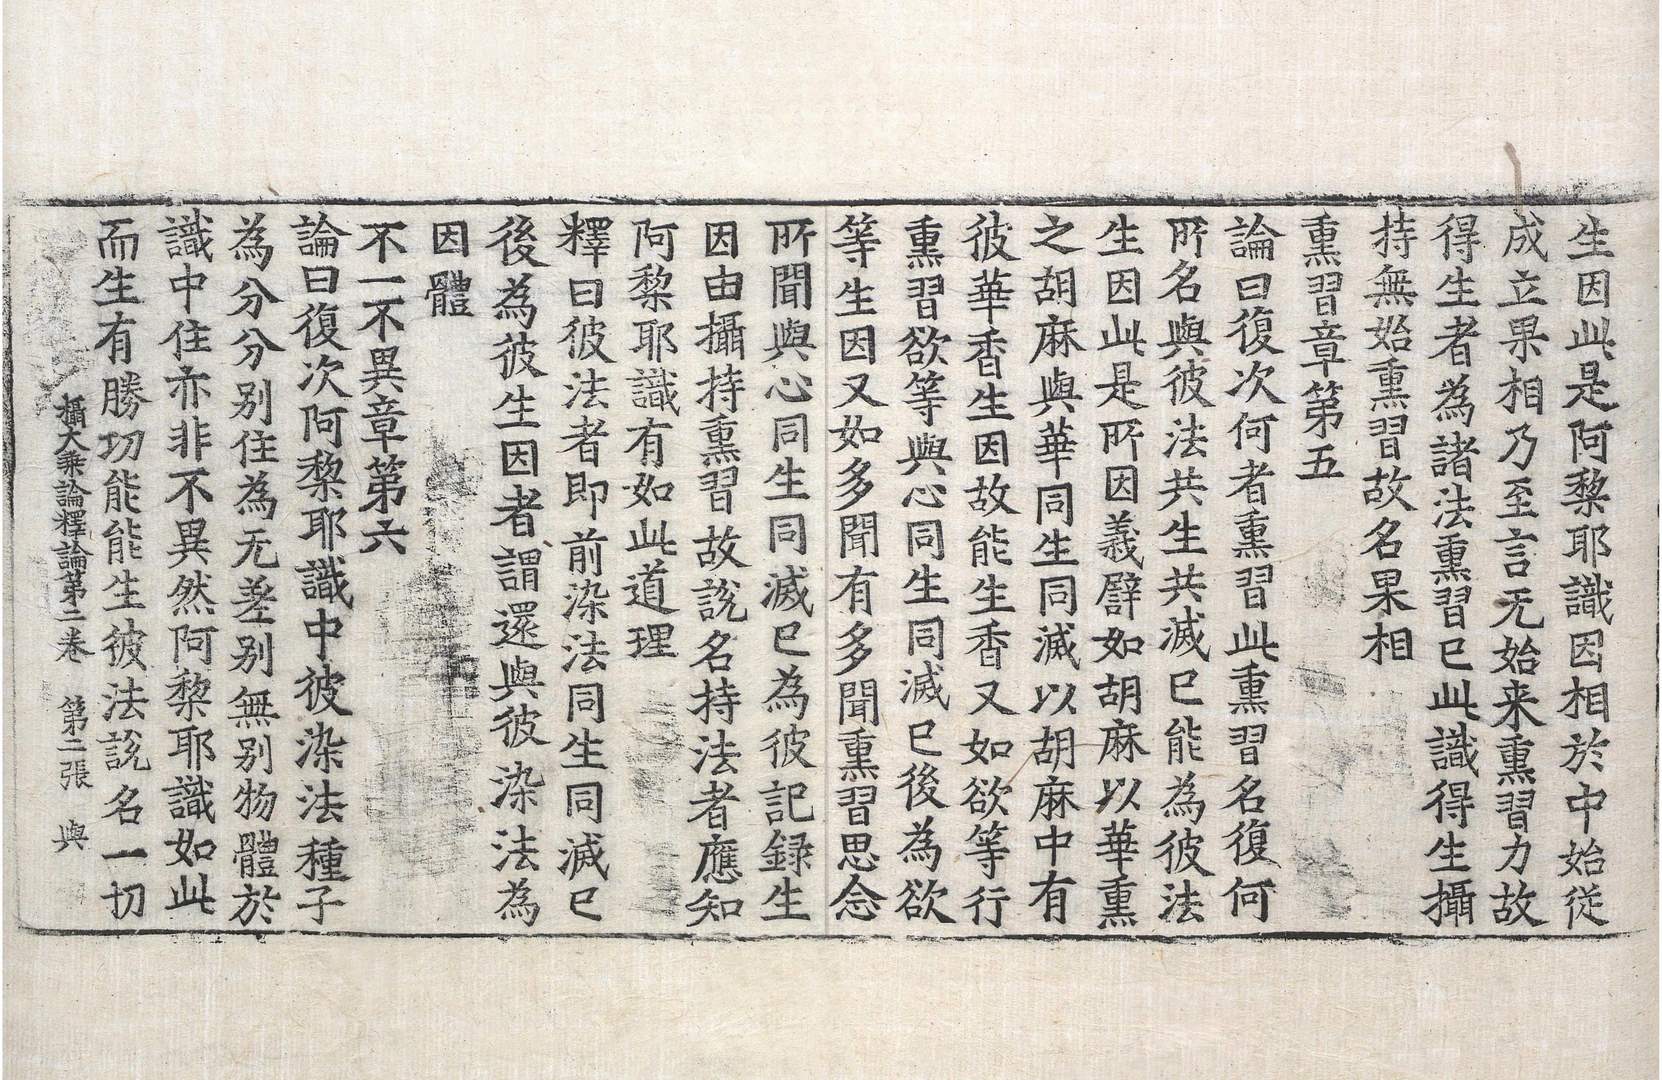 生因此是阿黎耶識因相於中始從
成立果相乃至言无始来熏習力故
得生者為諸法熏習已此識得生攝
持無始熏習故名果相
熏習章第五
論曰復次何者熏習此熏習名復何
所名與彼法共生共滅已能為彼法
生因此是所因義譬如胡麻以華熏
之胡麻與華同生同滅以胡麻中有
彼華香生因故能生香又如欲等行
熏習欲等與心同生同滅已後為欲
等生因又如多聞有多聞熏習思念
所聞與心同生同滅已為彼記録生
因由攝持熏習故說名持法者應知
阿黎耶識有如此道理
釋曰彼法者即前染法同生同滅已
後為彼生因者謂還與彼染法為
因體
不一不異章第六
論曰復次阿黎耶識中彼染法種子
為分分別住為无差別無別物體於
識中住亦非不異然阿黎耶識如此
而生有勝功能能生彼法說名一切
攝大乘論釋論第二卷　第二張　與